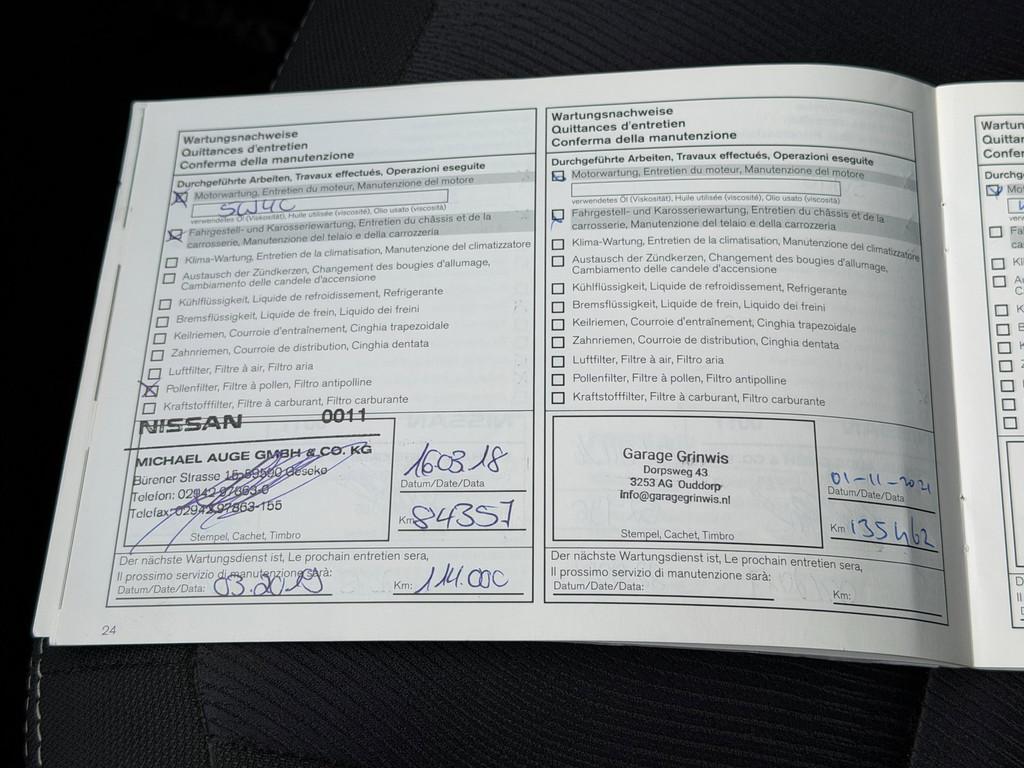 Wartungsnachweise
Quittances d'entretien
Conferma della manutenzione
Durchgeführte Arbeiten, Travaux effectués, Operazioni eseguite
Motorwartung, Entretien du moteur, Manutenzione del motore
verwendetes Öl (Viskosität), Huile utilisée (viscosité), Olio usato (viscosità)
Fahrgestell- und Karosseriewartung, Entretien du châssis et de la
carrosserie, Manutenzione del telaio e della carrozzeria
Klima-Wartung, Entretien de la climatisation, Manutenzione del climatizzatore
Austausch der Zündkerzen, Changement des bougies d'allumage,
Cambiamento delle candele d'accensione
Kühlflüssigkeit, Liquide de refroidissement, Refrigerante
Bremsflüssigkeit, Liquide de frein, Liquido dei freini
Keilriemen, Courroie d'entraînement, Cinghia trapezoidale
Zahnriemen, Courroie de distribution, Cinghia dentata
Luftfilter, Filtre à air, Filtro aria
Pollenfilter, Filtre à pollen, Filtro antipolline
Kraftstofffilter, Filtre à carburant, Filtro carburante
NISSAN 0011
MICHAEL AUGE GMBH & CO. KG
Bürener Strasse 15-59590 Geseke
Telefon: 02942-97863-0
Telefax: 02942-97863-155
Stempel, Cachet, Timbro
16.03.18
Datum/Date/Data
Km 84357
Der nächste Wartungsdienst ist, Le prochain entretien sera,
Il prossimo servizio di manutenzione sarà:
Datum/Date/Data: 03.2019 Km: 114.000
24
Wartungsnachweise
Quittances d'entretien
Conferma della manutenzione
Durchgeführte Arbeiten, Travaux effectués, Operazioni eseguite
Motorwartung, Entretien du moteur, Manutenzione del motore
verwendetes Öl (Viskosität), Huile utilisée (viscosité), Olio usato (viscosità)
Fahrgestell- und Karosseriewartung, Entretien du châssis et de la
carrosserie, Manutenzione del telaio e della carrozzeria
Klima-Wartung, Entretien de la climatisation, Manutenzione del climatizzatore
Austausch der Zündkerzen, Changement des bougies d'allumage,
Cambiamento delle candele d'accensione
Kühlflüssigkeit, Liquide de refroidissement, Refrigerante
Bremsflüssigkeit, Liquide de frein, Liquido dei freini
Keilriemen, Courroie d'entraînement, Cinghia trapezoidale
Zahnriemen, Courroie de distribution, Cinghia dentata
Luftfilter, Filtre à air, Filtro aria
Pollenfilter, Filtre à pollen, Filtro antipolline
Kraftstofffilter, Filtre à carburant, Filtro carburante
Garage Grinwis
Dorpsweg 43
3253 AG Ouddorp
Info@garagegrinwis.nl
Stempel, Cachet, Timbro
01-11-2021
Datum/Date/Data
Km 135462
Der nächste Wartungsdienst ist, Le prochain entretien sera,
Il prossimo servizio di manutenzione sarà:
Datum/Date/Data: Km: